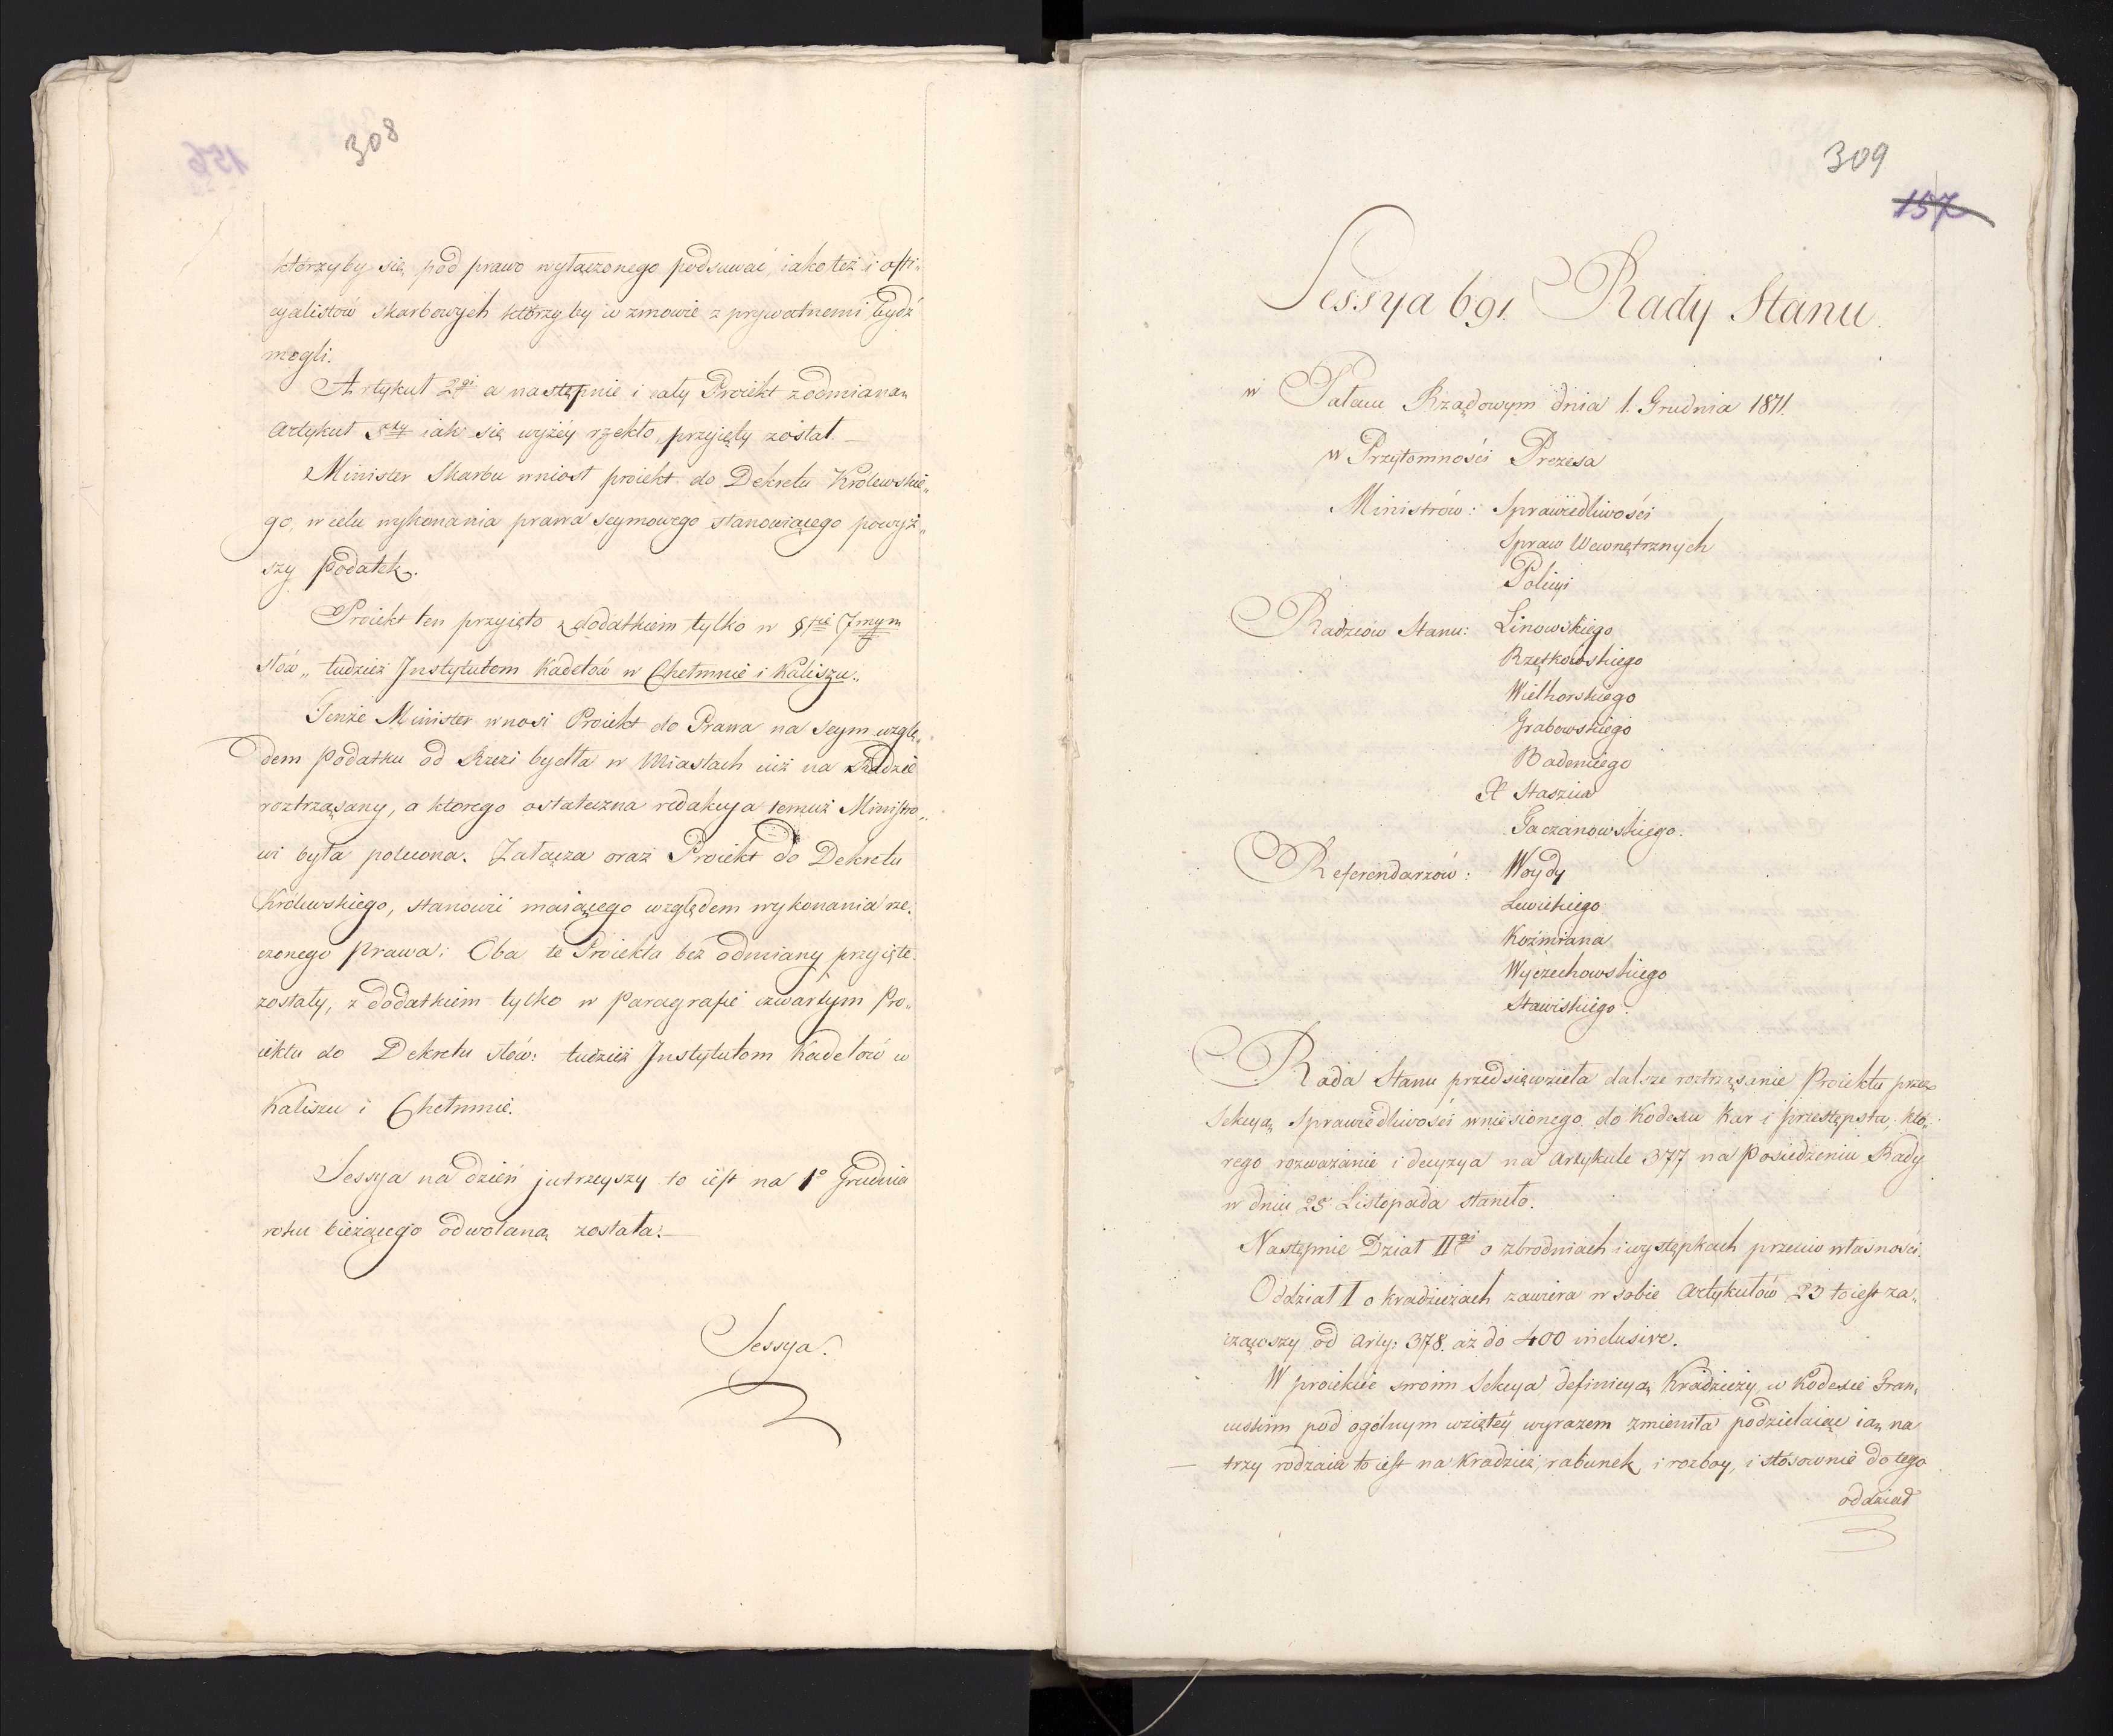 308
którzyby się pod prawo wyłączonego podsuwać, iako też i offi„
cyalistów skarbowych którzyby w zmowie z prywatnemi bydź
mogli.
Artykuł 2gi a następnie i cały Proiekt z odmianą
artykuł 5ty iak się wyżéy rzekło, przyięty został. —
Minister Skarbu wniosł proiekt do Dekretu Królewskie„
go, w celu wykonania prawa seymowego stanowiącego powyż„
szy podatek.
Proiekt ten przyięto z dodatkiem tylko w §fie 7mym
słów „ tudzież Instytutom Kadetów w Chełmnie i Kaliszu „
Tenże Minister wnosi Proiekt do Prawa na Seym wzglę„
dem podatku od Rzezi bydła w Miastach iuż na Radzie
roztrząsany, a ktorego ostateczna redakcya temuż Ministro„
wi była polecona. Załącza oraz Proiekt do Dekretu
Królewskiego, stanowić maiącego względem wykonania rze„
czonego prawa: Oba te Proiekta bez odmiany przyięte
zostały, z dodatkiem tylko w paragrafie czwartym Pro„
iektu do Dekretu słów: tudzież Instytutom Kadetów w
Kaliszu i Chełmnie.
Sessya na dzień jutrzeyszy to iest na 1o Grudnia
roku bieżącego odwołaną została. —
Sessya.
309
157
Sessya 691. Rady Stanu.
w Pałacu Rządowym dnia 1. Grudnia 1811.
w Przytomności Prezesa
Ministrów: Sprawiedliwości
Spraw Wewnętrznych
Policyi
Radzców Stanu: Linowskiego
Rzętkowskiego
Wielhorskiego
Grabowskiego
Badeniego
X Staszica
Gaczanowskiego.
Referendarzów: Woydy
Lewickiego
Koźmiana
Wyczechowskiego
Stawiskiego.
Rada Stanu przedsięwzieła dalsze roztrząsanie Proiektu przez
Sekcyą Sprawiedliwości wniesionego do Kodexu Kar i przestępstw, któ„
rego rozważanie i decyzya na artykule 377 na Posiedzeniu Rady
w dniu 25 Listopada staneło.
Następnie Dział IIgi o zbrodniach i występkach przeciw własności.
Oddział I o kradzieżach zawiera w sobie artykułów 23 to iest za„
cząwszy od arty: 378. aż do 400 inclusive.
W proiekcie swoim Sekcya definicyą Kradzieży, w Kodexie Fran„
cuskim pod ogólnym wziętéy wyrazem zmieniła podzielaiąc ią na
— trzy rodzaie to iest na Kradzież, rabunek, i rozboy, i stosownie do tego
oddział